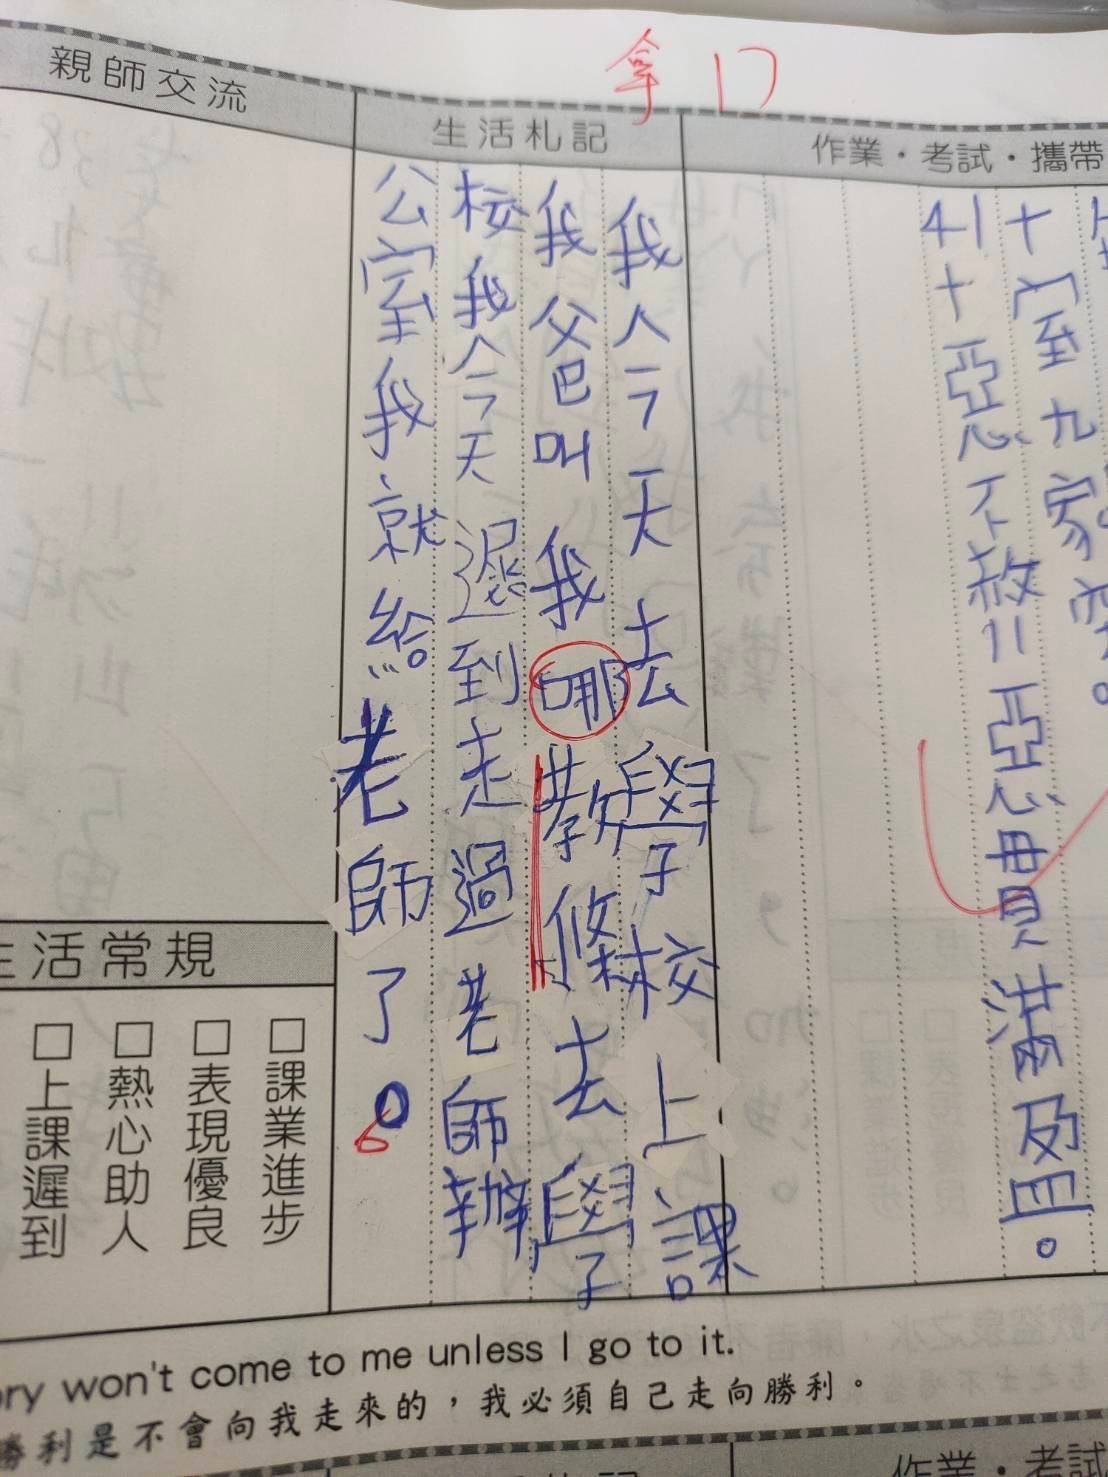 拿口
作業・考試・攜帶
十室九家空。
41十惡不赦=惡貫滿盈。
生活札記
我今天去學校上課
我父巴叫我哪教條去學
校我今天遲到走過老師辦
公室我就給老師了。
親師交流
生活常規
□課業進步
□表現優良
□熱心助人
□上課遲到
ory won't come to me unless I go to it.
勝利是不會向我走來的，我必須自己走向勝利。
作業・考試